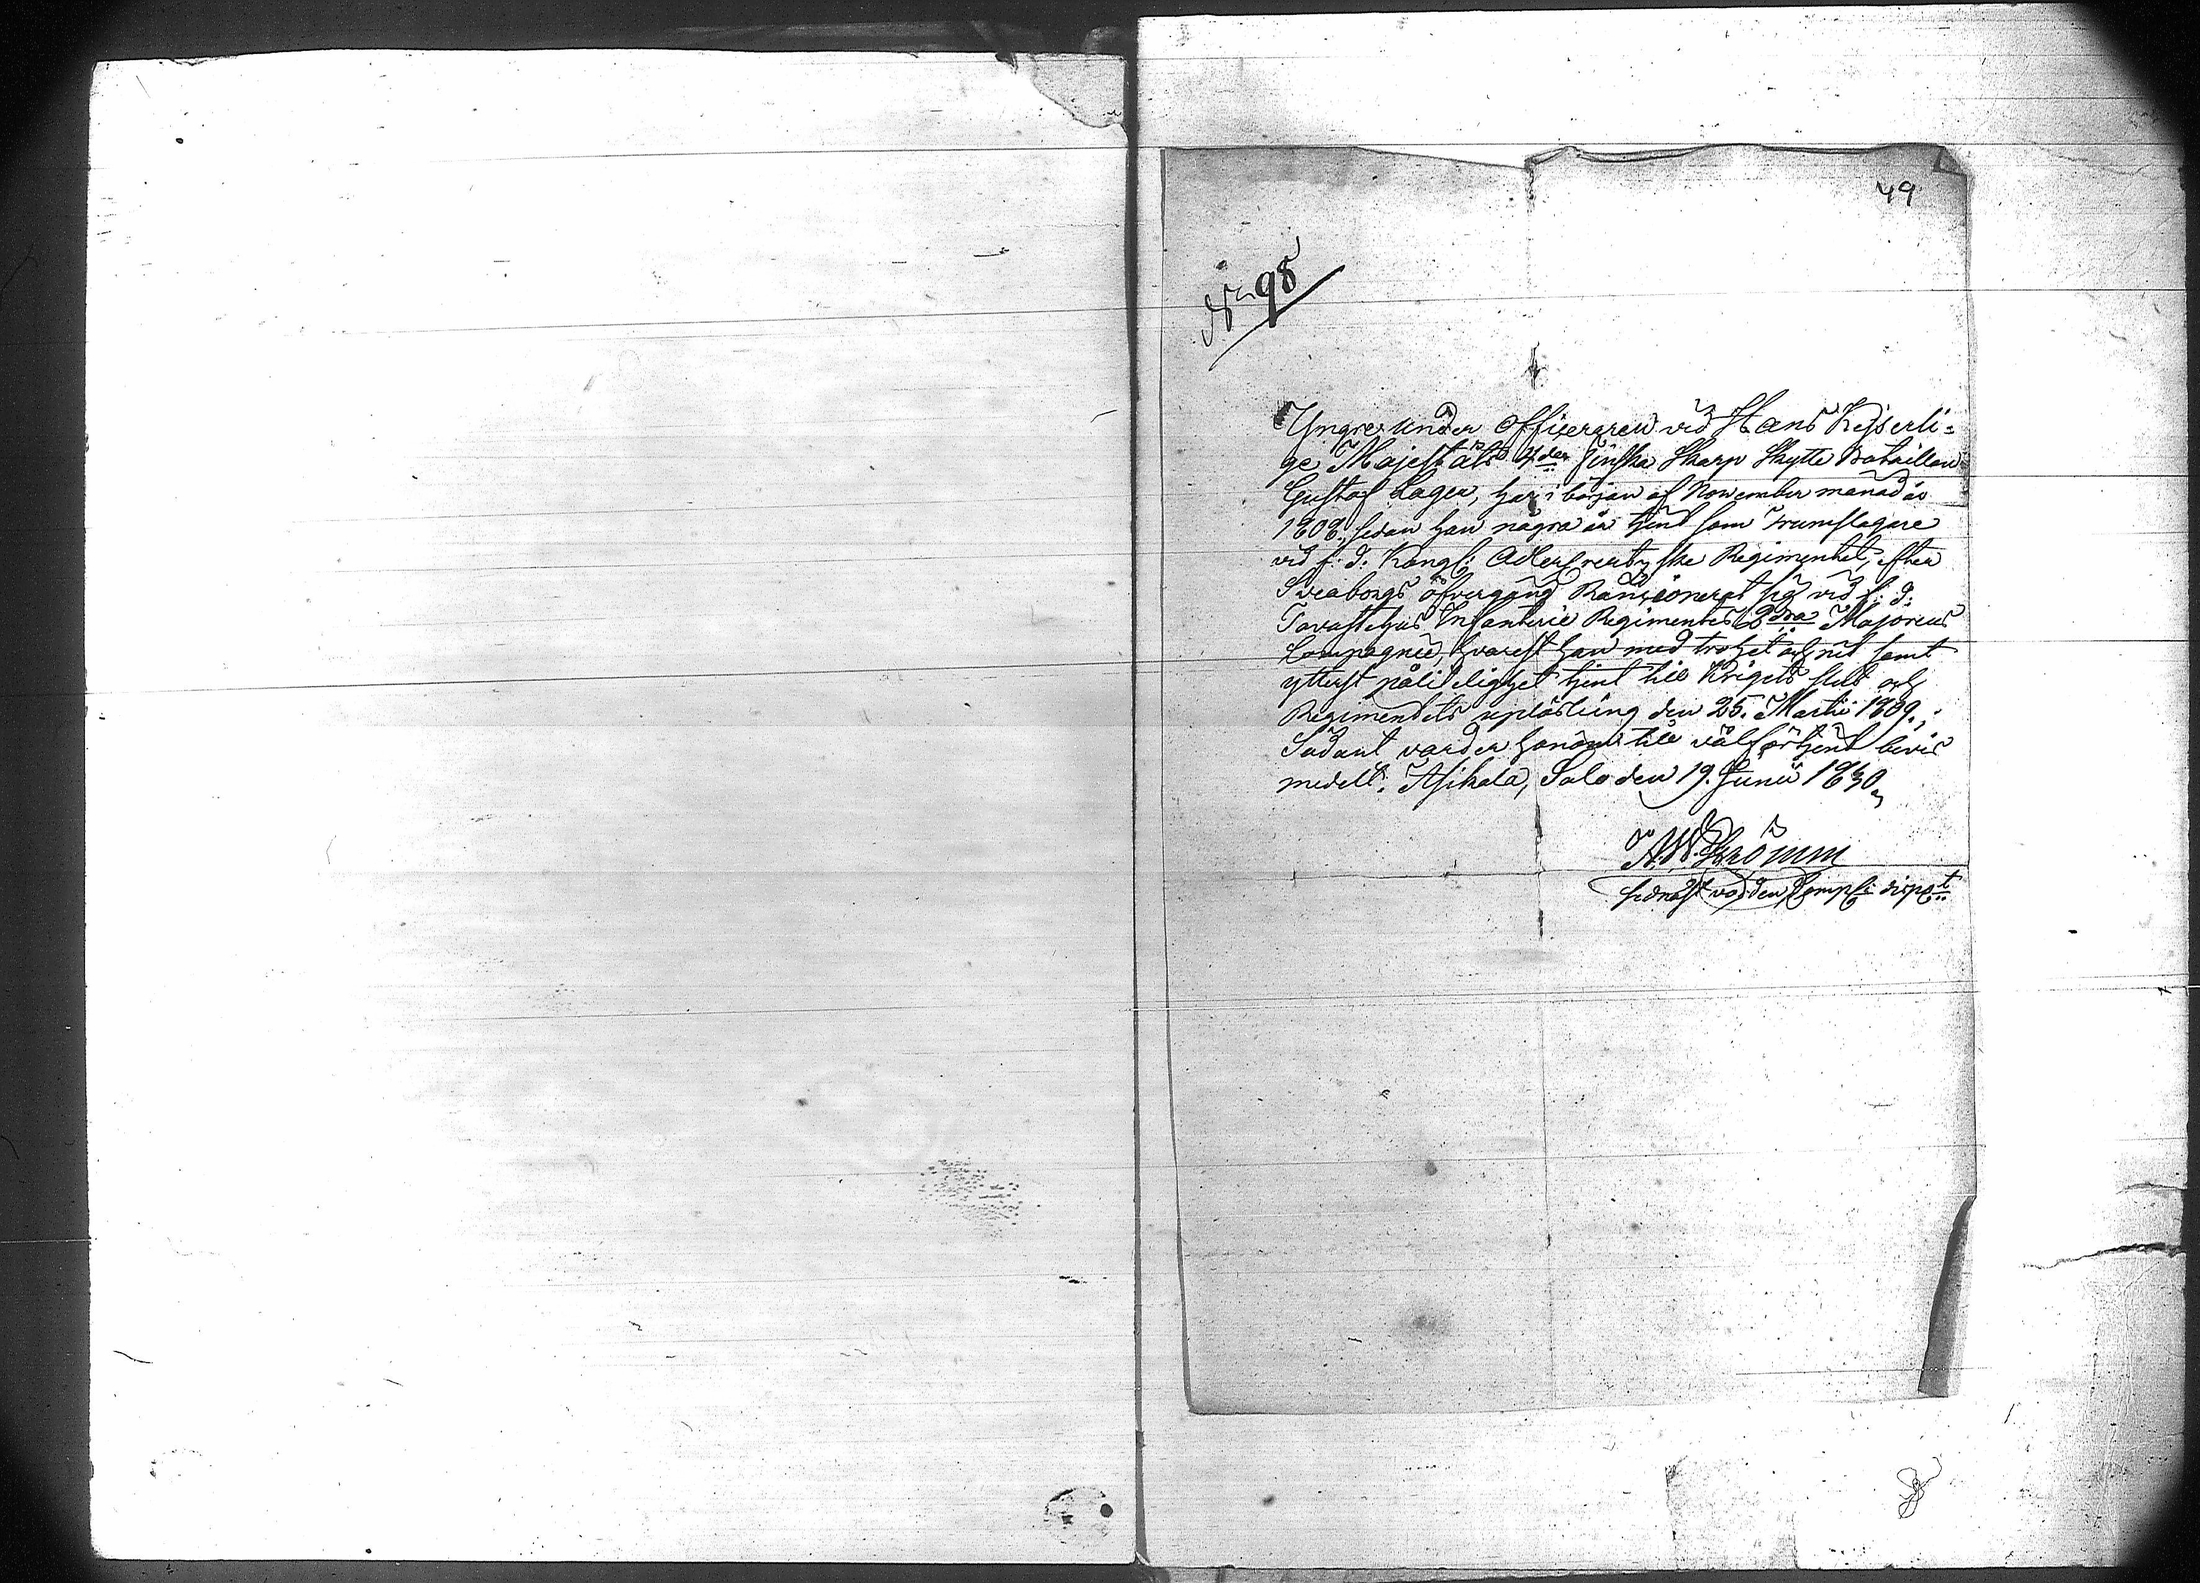 49
No 98
Yngre under Officeraren vid Hans Kejserli=
ge Majestäts 4de Finska Skarp Skytte Bataillon
Gustaf Lager, har i början af November månad år
1808, sedan han några år tjent som Trumslagare
vid f: d: Kongl: Adlercreutzska Regimentet, efter
Sveaborgs öfvergång Ranzionerat sig vid f: d:
Tavastehus Infanterie Regimentes 2dra Majorens
Compagnie, hvarest han med trohet och nit samt
ytterst pålitelighet tjent till Krigets slut och
Regimentets uplösning den 25. Martii 1809.;
Sådant varder honom till välförtjent bevis
medelt. Asikala, Salo den 19. Junii 1830,
Strömm
sednast varden Comps: